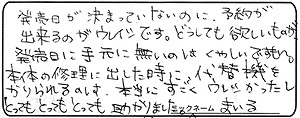 発売日が決まっていないのに、予約が
出来るのがウレイシです。どうしても欲しいものが
発売日に手元に無いのはくやしいですもん。
本体の修理に出した時に、代替機を
かりられるのは、本当にすごくウレシかったし
とってもとってもとっても助かりました ニックネーム まいる